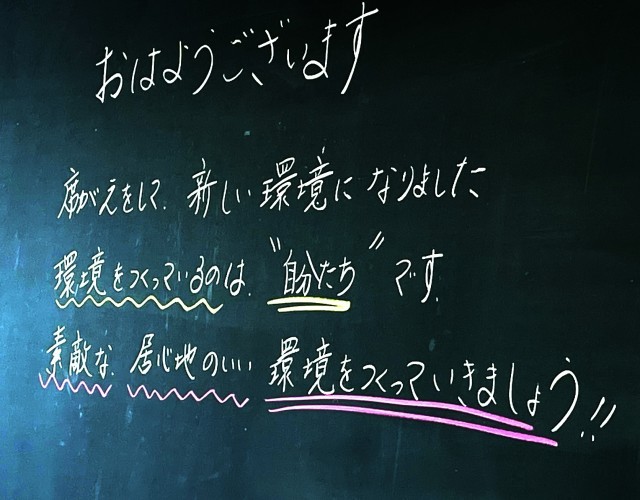 おはようございます
席がえをして、新しい環境になりました
環境をつくっているのは、"自分たち"です。
素敵な、居心地のいい環境をつくっていきましょう!!